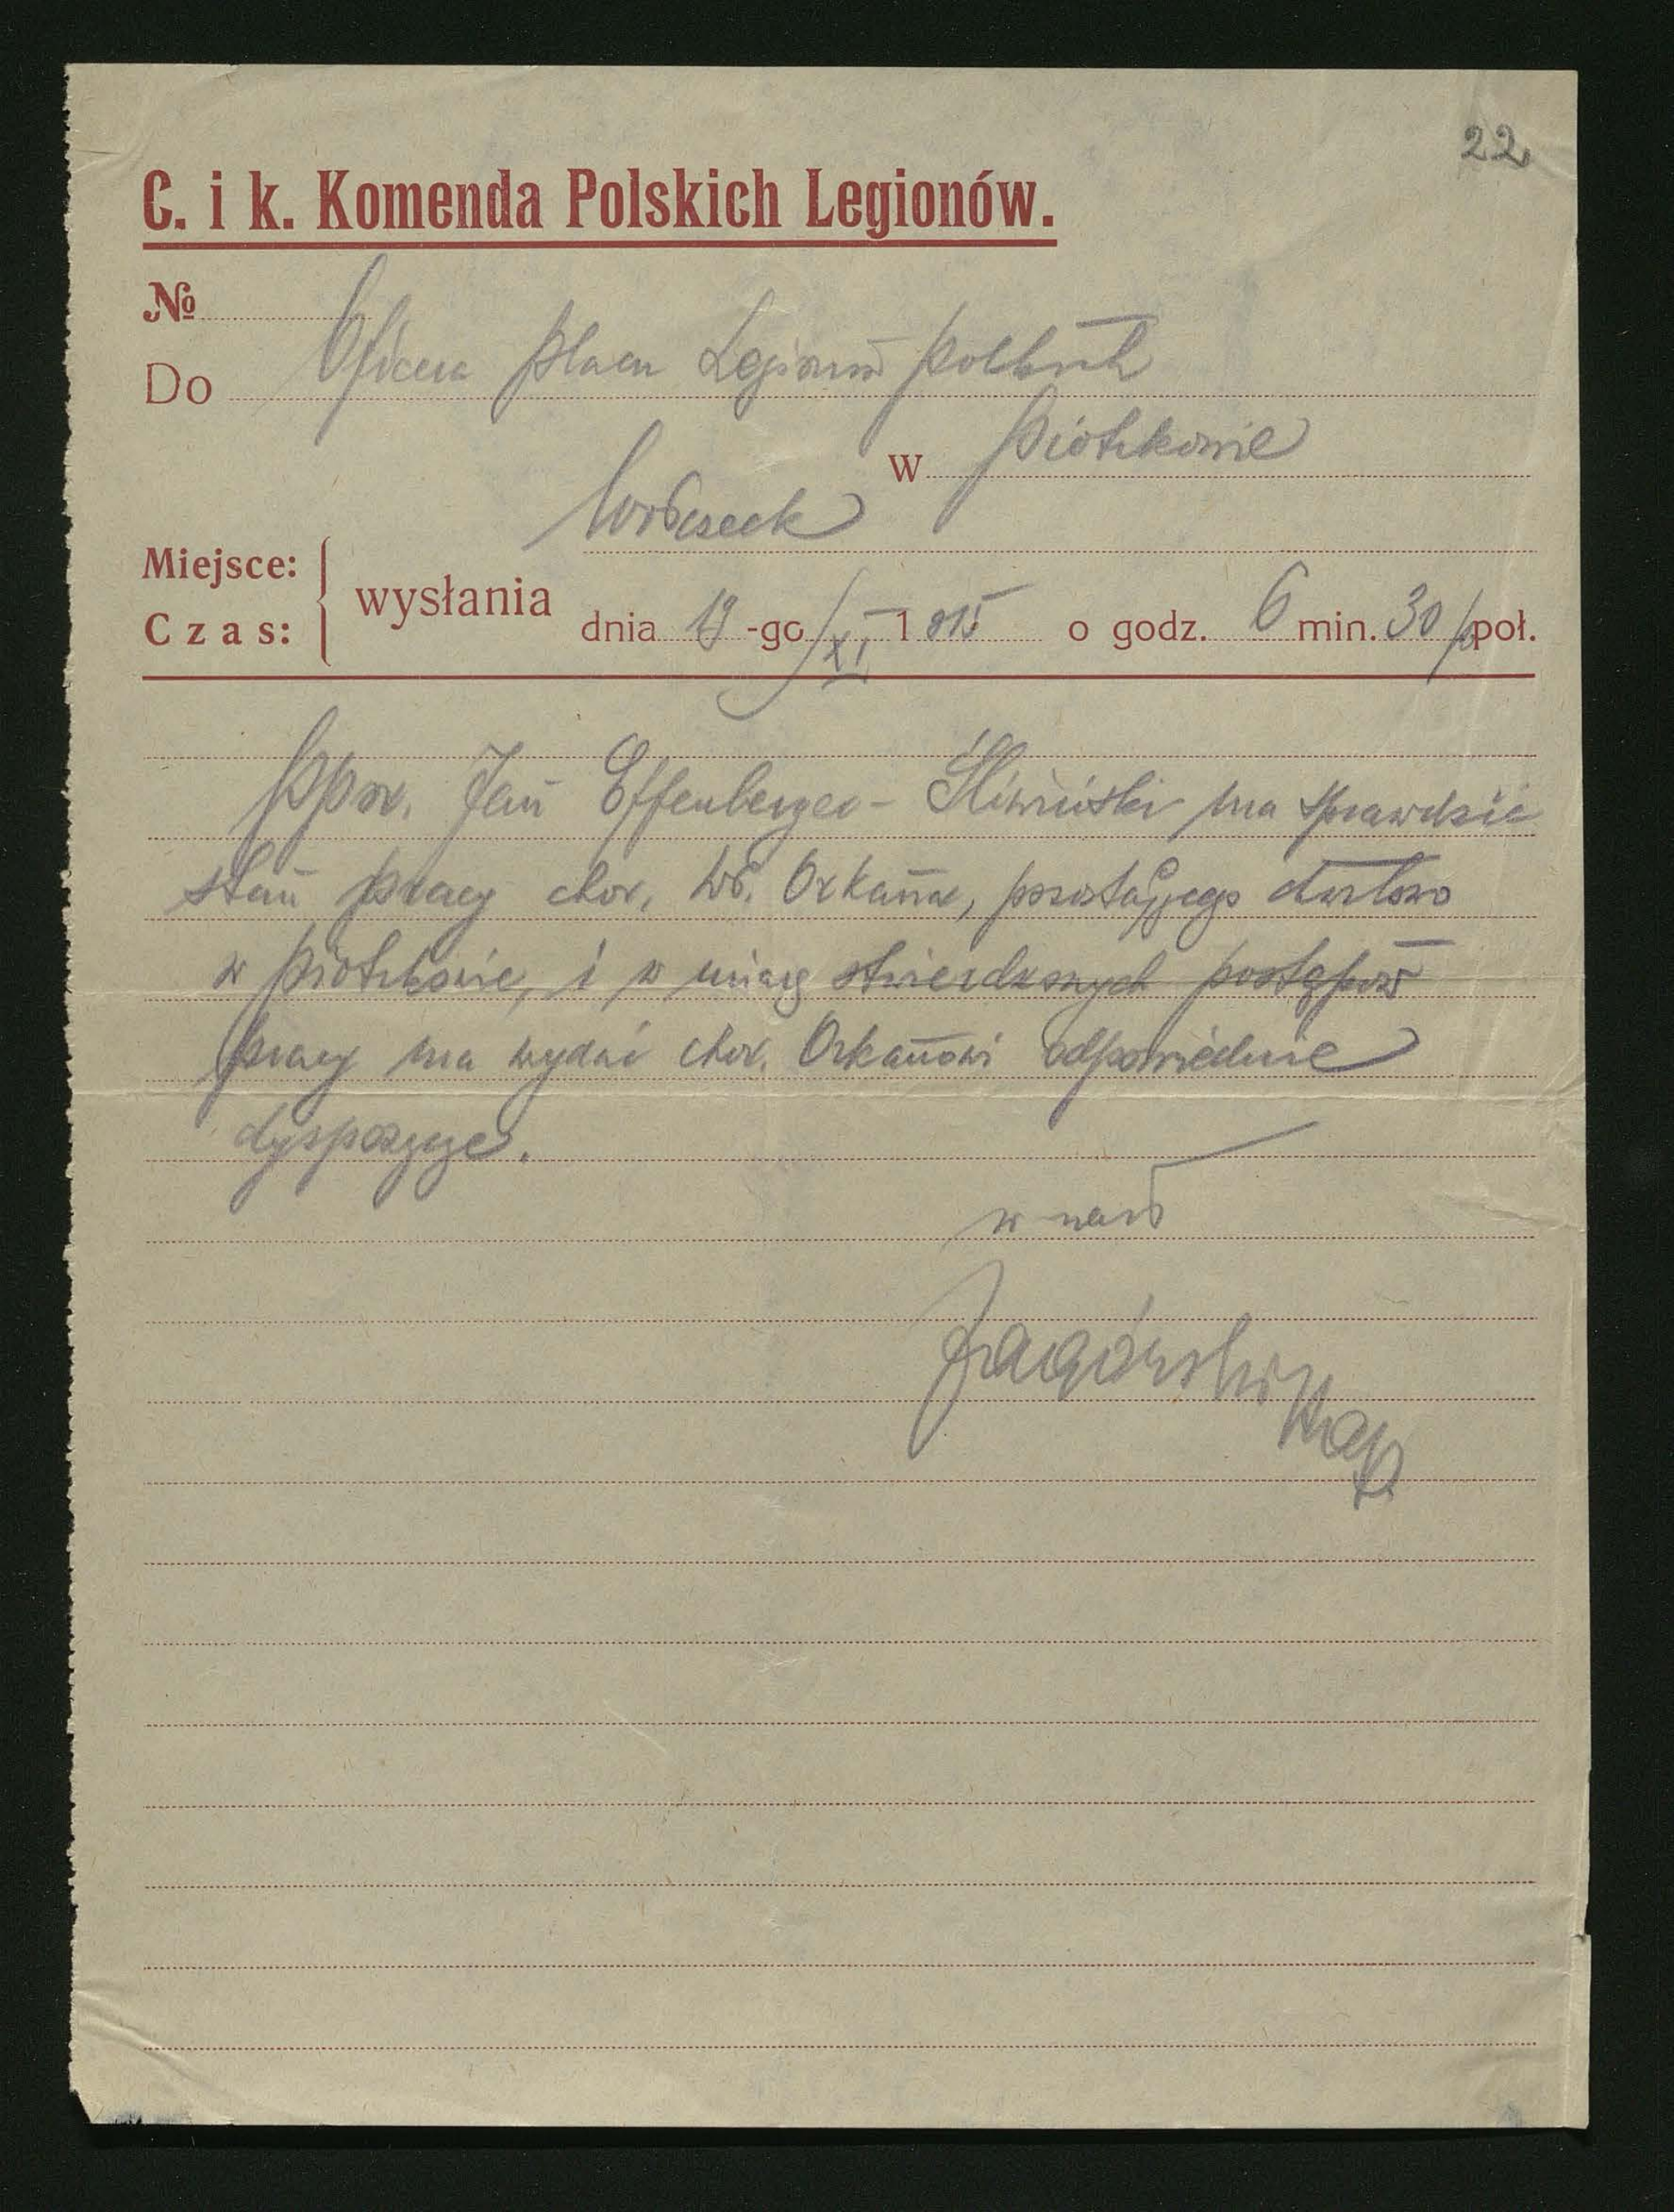 22
C. i k. Komenda Polskich Legionów.
№
Do Oficera placu Legionów polskich
w Piotrkowie
Wołczeck
Miejsce:
Czas:
wysłania
dnia 19 -go /XI 1915 o godz. 6 min. 30 p poł.
Ppor. Jan Effenberger-Śliwiński ma sprawdzić
stan pracy chor. Wł. Orkana, pozostającego
w Piotrkowie, i w miarę stwierdzonych postępów
pracy ma wydać chor. Orkanowi odpowiednie
dyspozycye.
Zagórski kap.